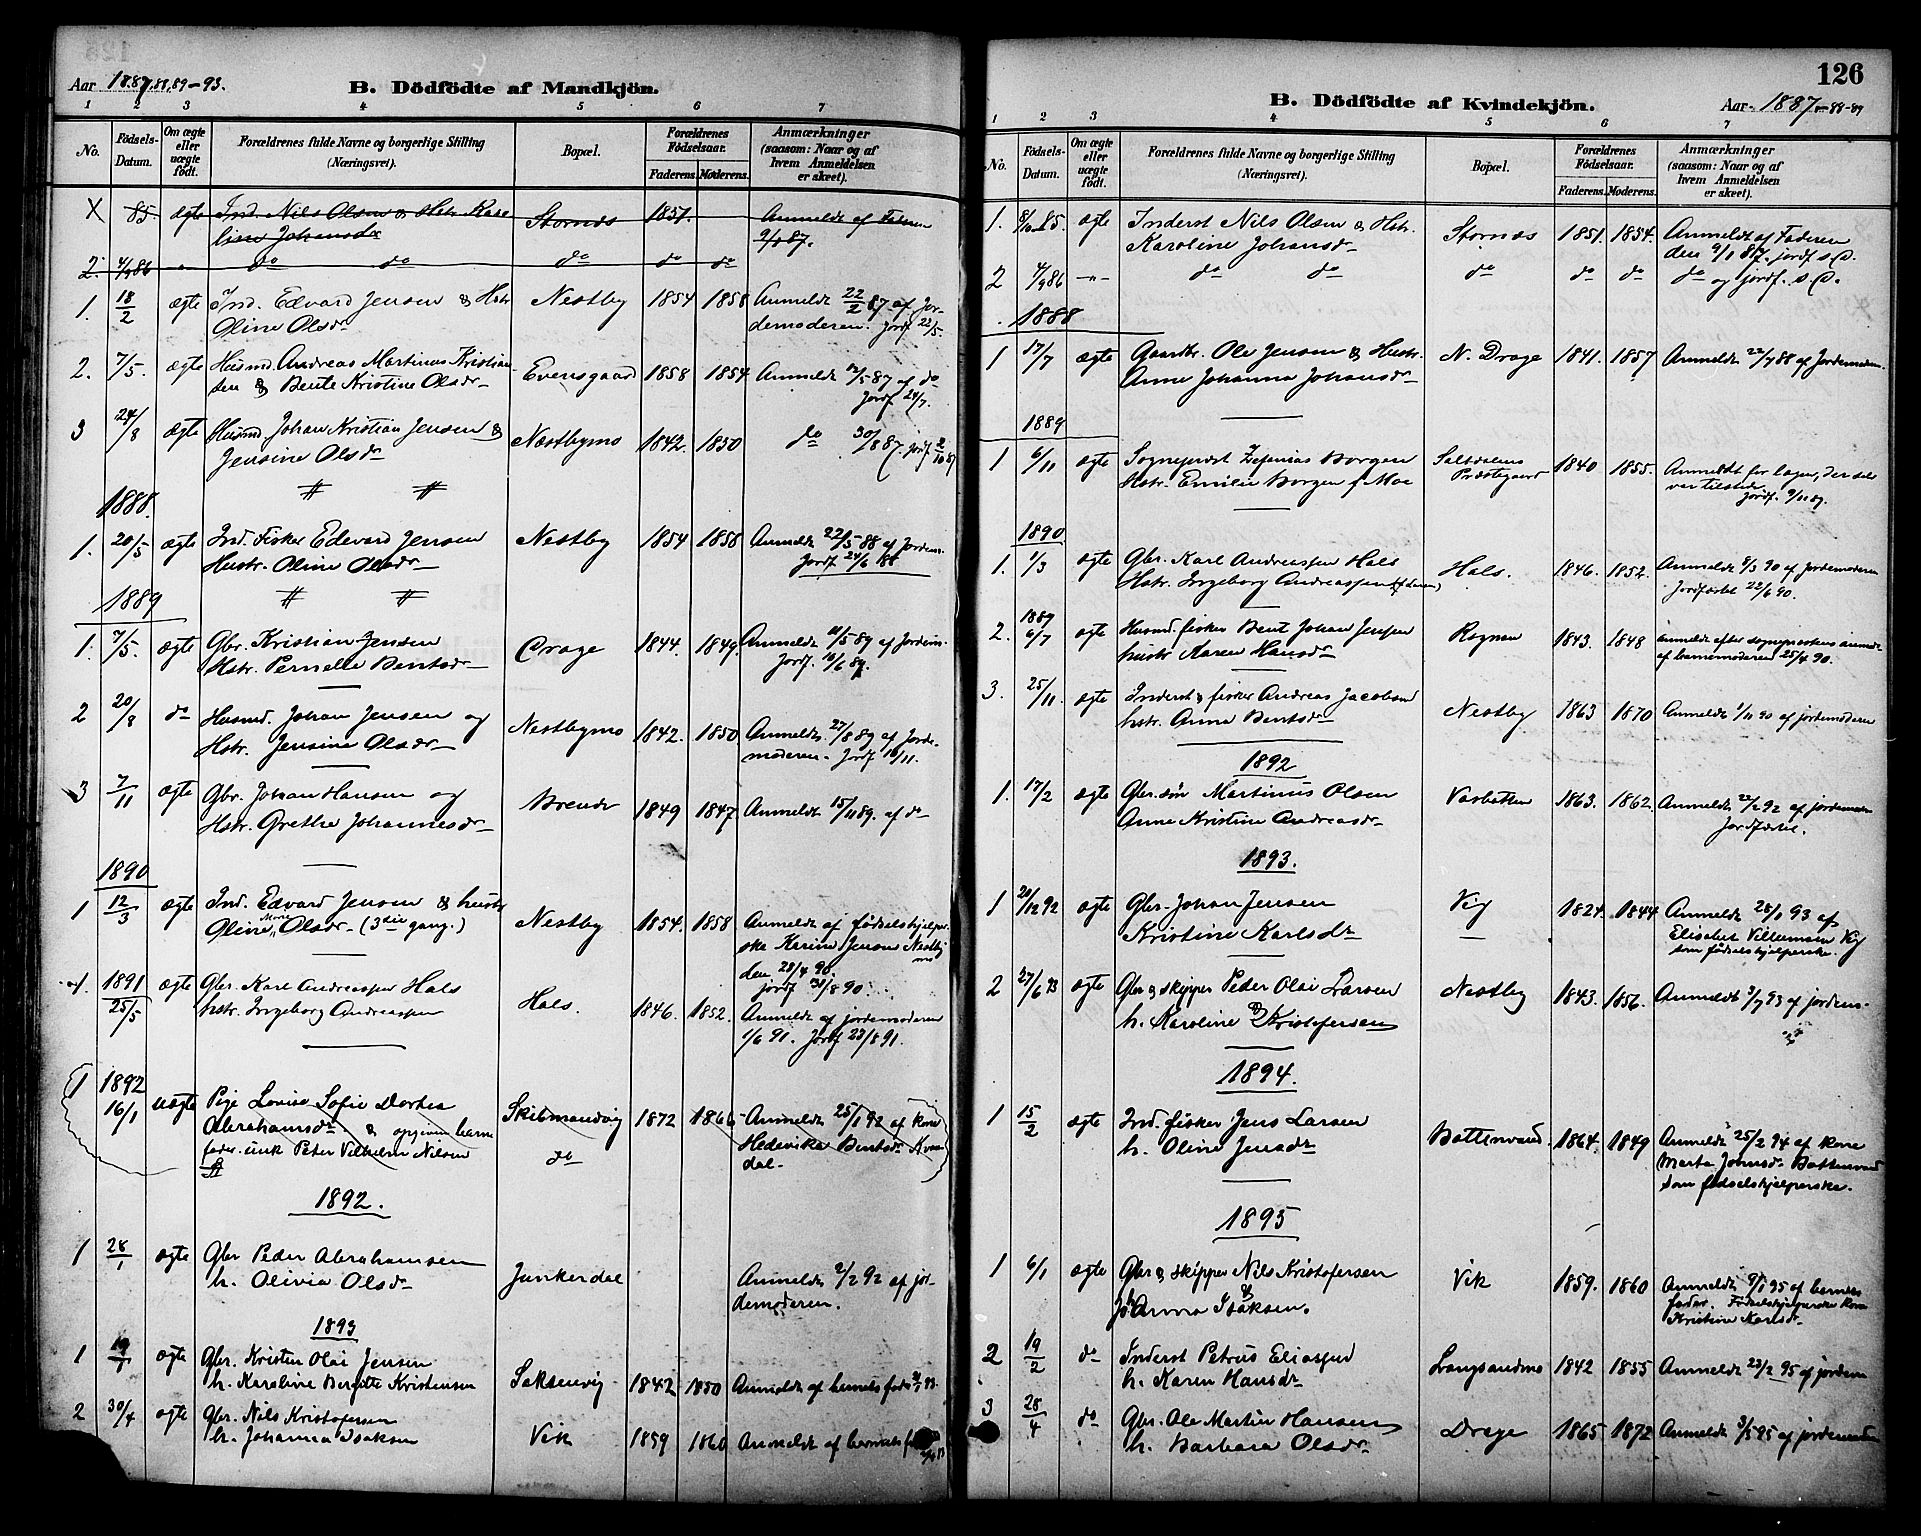 Aar 1887,88,89-93.
B. Dödfödte af Mandkjön.
1 2 3 4 5 6 7
No.
Födsels-Datum.
Om ægte eller uægte födt.
Forældrenes fulde Navne og borgerlige Stilling (Næringsvei).
Bopæl.
Forældrenes Födselsaar.
Faderens. Moderens.
Anmærkninger (saasom: Naar og af hvem Anmeldelsen er skeet).
X 85. ægte Ind. Nils Olsen & Hstr. Karo Stornæs 1851. Anmeldt af Faderen
line Johansdr 9/1 87.
2. 4/9 86 " do do do do do
1. 18/2 ægte Ind. Edvard Jensen & Hstr Nestby 1854 1858 Anmeldt 22/2 87 af Jor-
Oline Olsdr demoderen. Jordf 22/5.
2. 7/5. ægte Husmd Andreas Martinus Kristian Evensgaard 1858 1854 Anmeldt 12/5 87 af do
sen & Bente Kristine Olsdr Jordf 24/7.
3 24/8 ægte Husmd Johan Kristian Jensen & Næstbymo 1842. 1850 do 30/8 87. jordf 2/10 87
Jensine Olsdr
1888.
1. 20/5 ægte Ind. Fisker Edevard Jensen Nestby 1854 1858 Anmeldt 22/5 88 af Jordem.
Hustr. Oline Olsdr Jordf 24/6 88
1889
1. 7/5. ægte Gbr. Kristian Jensen Drage 1844. 1849. Anmeldt 11/5 89 af Jordem.
Hstr. Pernelle Bentsdr Jordf. 10/6 89.
2 20/8 do Husmd. Johan Jensen og Nestbymo 1842. 1850 Anmeldt 27/8 89 af Jorde-
Hstr. Jensine Olsdr moderen. Jordf 10/11.
3 7/11 ægte Gbr. Johan Hansen og 1849 1847 Anmeldt 15/11 89. af do
Hstr. Grethe Johannesdr
1890
1 12/3 ægte Ind. Edvard Jensen & hustr Nestby 1854. 1858 Anmeldt af fødselshjelper-
Oline Marie Olsdr (3die gang.) ske Karine Jensen Nestby
mo
den 28/4 90.
jordf /8 90.
1. 1891 ægte Gbr. Karl Andreassen Hals Hals. 1846. 1852. Anmeldt af jordemoderen
25/5 hstr. Ingeborg Andreassen 1/6 91. Jordf 23/8 91.
1 1892
16/1 uægte Pige Lovise Sofie Dortea Skibmandvig 1872 1866 Anmeldt 25/1 92 af kone
Abrahamsdr & opgiven barne do Hedevika Bentsdr
fader: unk Peter Vilhelm Nilsen dal.
1892.
1 28/1 ægte Gbr Peder Abrahamsen Junkerdal Anmeldt 2/2 92 af jor
h. Olivia Olsdr demoderen.
1893
1 19/1 ægte Gbr. Kristen Olai Jensen Saksenvig 1842 1850 Anmeldt af barnets fader
h. Karoline Bergitte Kristensen
2 30/4 ægte Gbr. Nils Kristofersen Vik 1859 1860 Anmeldt af barnets
h. Johanna Isaksen
126
B. Dödfödte af Kvindekjön.
Aar 1887-88-89
1 2 3 4 5 6 7
No.
Födsels-Datum.
Om ægte eller uægte födt.
Forældrenes fulde Navne og borgerlige Stilling (Næringsvei).
Bopæl.
Forældrenes Födselsaar.
Faderens. Moderens.
Anmærkninger (saasom: Naar og af hvem Anmeldelsen er skeet).
1. 8/10 85. ægte Inderst Nils Olsen & Hstr. Stornæs 1851. 1854. Anmeldt af Faderen
Karoline Johansdr den 9/1 87. jordf s.D.
2 4/9 86 -"- do do do do do do og jordf. s.D.
1888
1 17/7 ægte Gaardbr. Ole Jensen & Hustr. N. Drage 1841. 1857 Anmeldt 22/7 88 af Jordemoderen.
Anne Johanna Johansdr
1889
1 6/11 ægte Sogneprest Zefanias Borgen Saltdalens 1840 1855. Anmeldt før læger, der selv
Hstr. Emilie Borgen f Moe Præstegaard var tilstede. Jordf. 9/11 89.
1890
1. 1/3 ægte Gbr. Karl Andreassen Hals Hals. 1846. 1852. Anmeldt 9/3 90 af Jordemoderen
Hstr. Ingeborg Andreassen Jordfæstet 22/6 90.
2. 1889 6/7 ægte Husmd. fisker Bent Johan Jensen Rognan 1843. 1848 anmeldt efter sogneprestens anmod.
hustr Karen Hansdr af barnemoderen 25/4 90.
3. 25/11 ægte Inderst & fisker Andreas Jacobsen Nestby 1863 1870 Anmeldt 1/11 90 af jordemoderen
hstr. Anne Bentsdr
1892
1. 17/2 ægte Gbr.søn Martinus Olsen Vasbotten 1863. 1862. Anmeldt 22/2 92 af jordemoderen
Anne Kristine Andreasdr Jordfæstet.
1893.
1 20/12 92 ægte Gbr. Johan Jensen Vig 1824. 1844 Anmeldt 28/1 93 af
Kristine Karlsdr Elisabet Villumsen Vig
som fødselshjelperske.
2 27/6 93 ægte Gbr & skipper Peder Olai Larsen Nestby 1843. 1856. Anmeldt 3/7 93 af jordem-
h. Karoline Kristofersen
1894.
1 15/2 ægte Ind. fisker Jens Larsen Bottenvand. 1864. 1849 Anmeldt 25/2 94 af kone
h. Oline Jensdr Marta Johnsdr Bottenvand
som fødselshjelperske.
1895
1 6/1 ægte Gbr & skipper Nils Kristofersen Vik 1859. 1860 Anmeldt 9/1 95 af barnets
Johanna Isaksen. fader. Fødselshjelperske kone
Kristine Karlsdr
2 19/2 do Inderst Petrus Eliassen Langsandmo 1842 1855 Anmeldt 23/2 95 af jordem
h. Karen Hansdr
3 28/4 do Gbr. Ole Martin Hansen Drage 1865 1872 Anmeldt 3/5 95 af jordemoderen
h. Barbara Olsdr